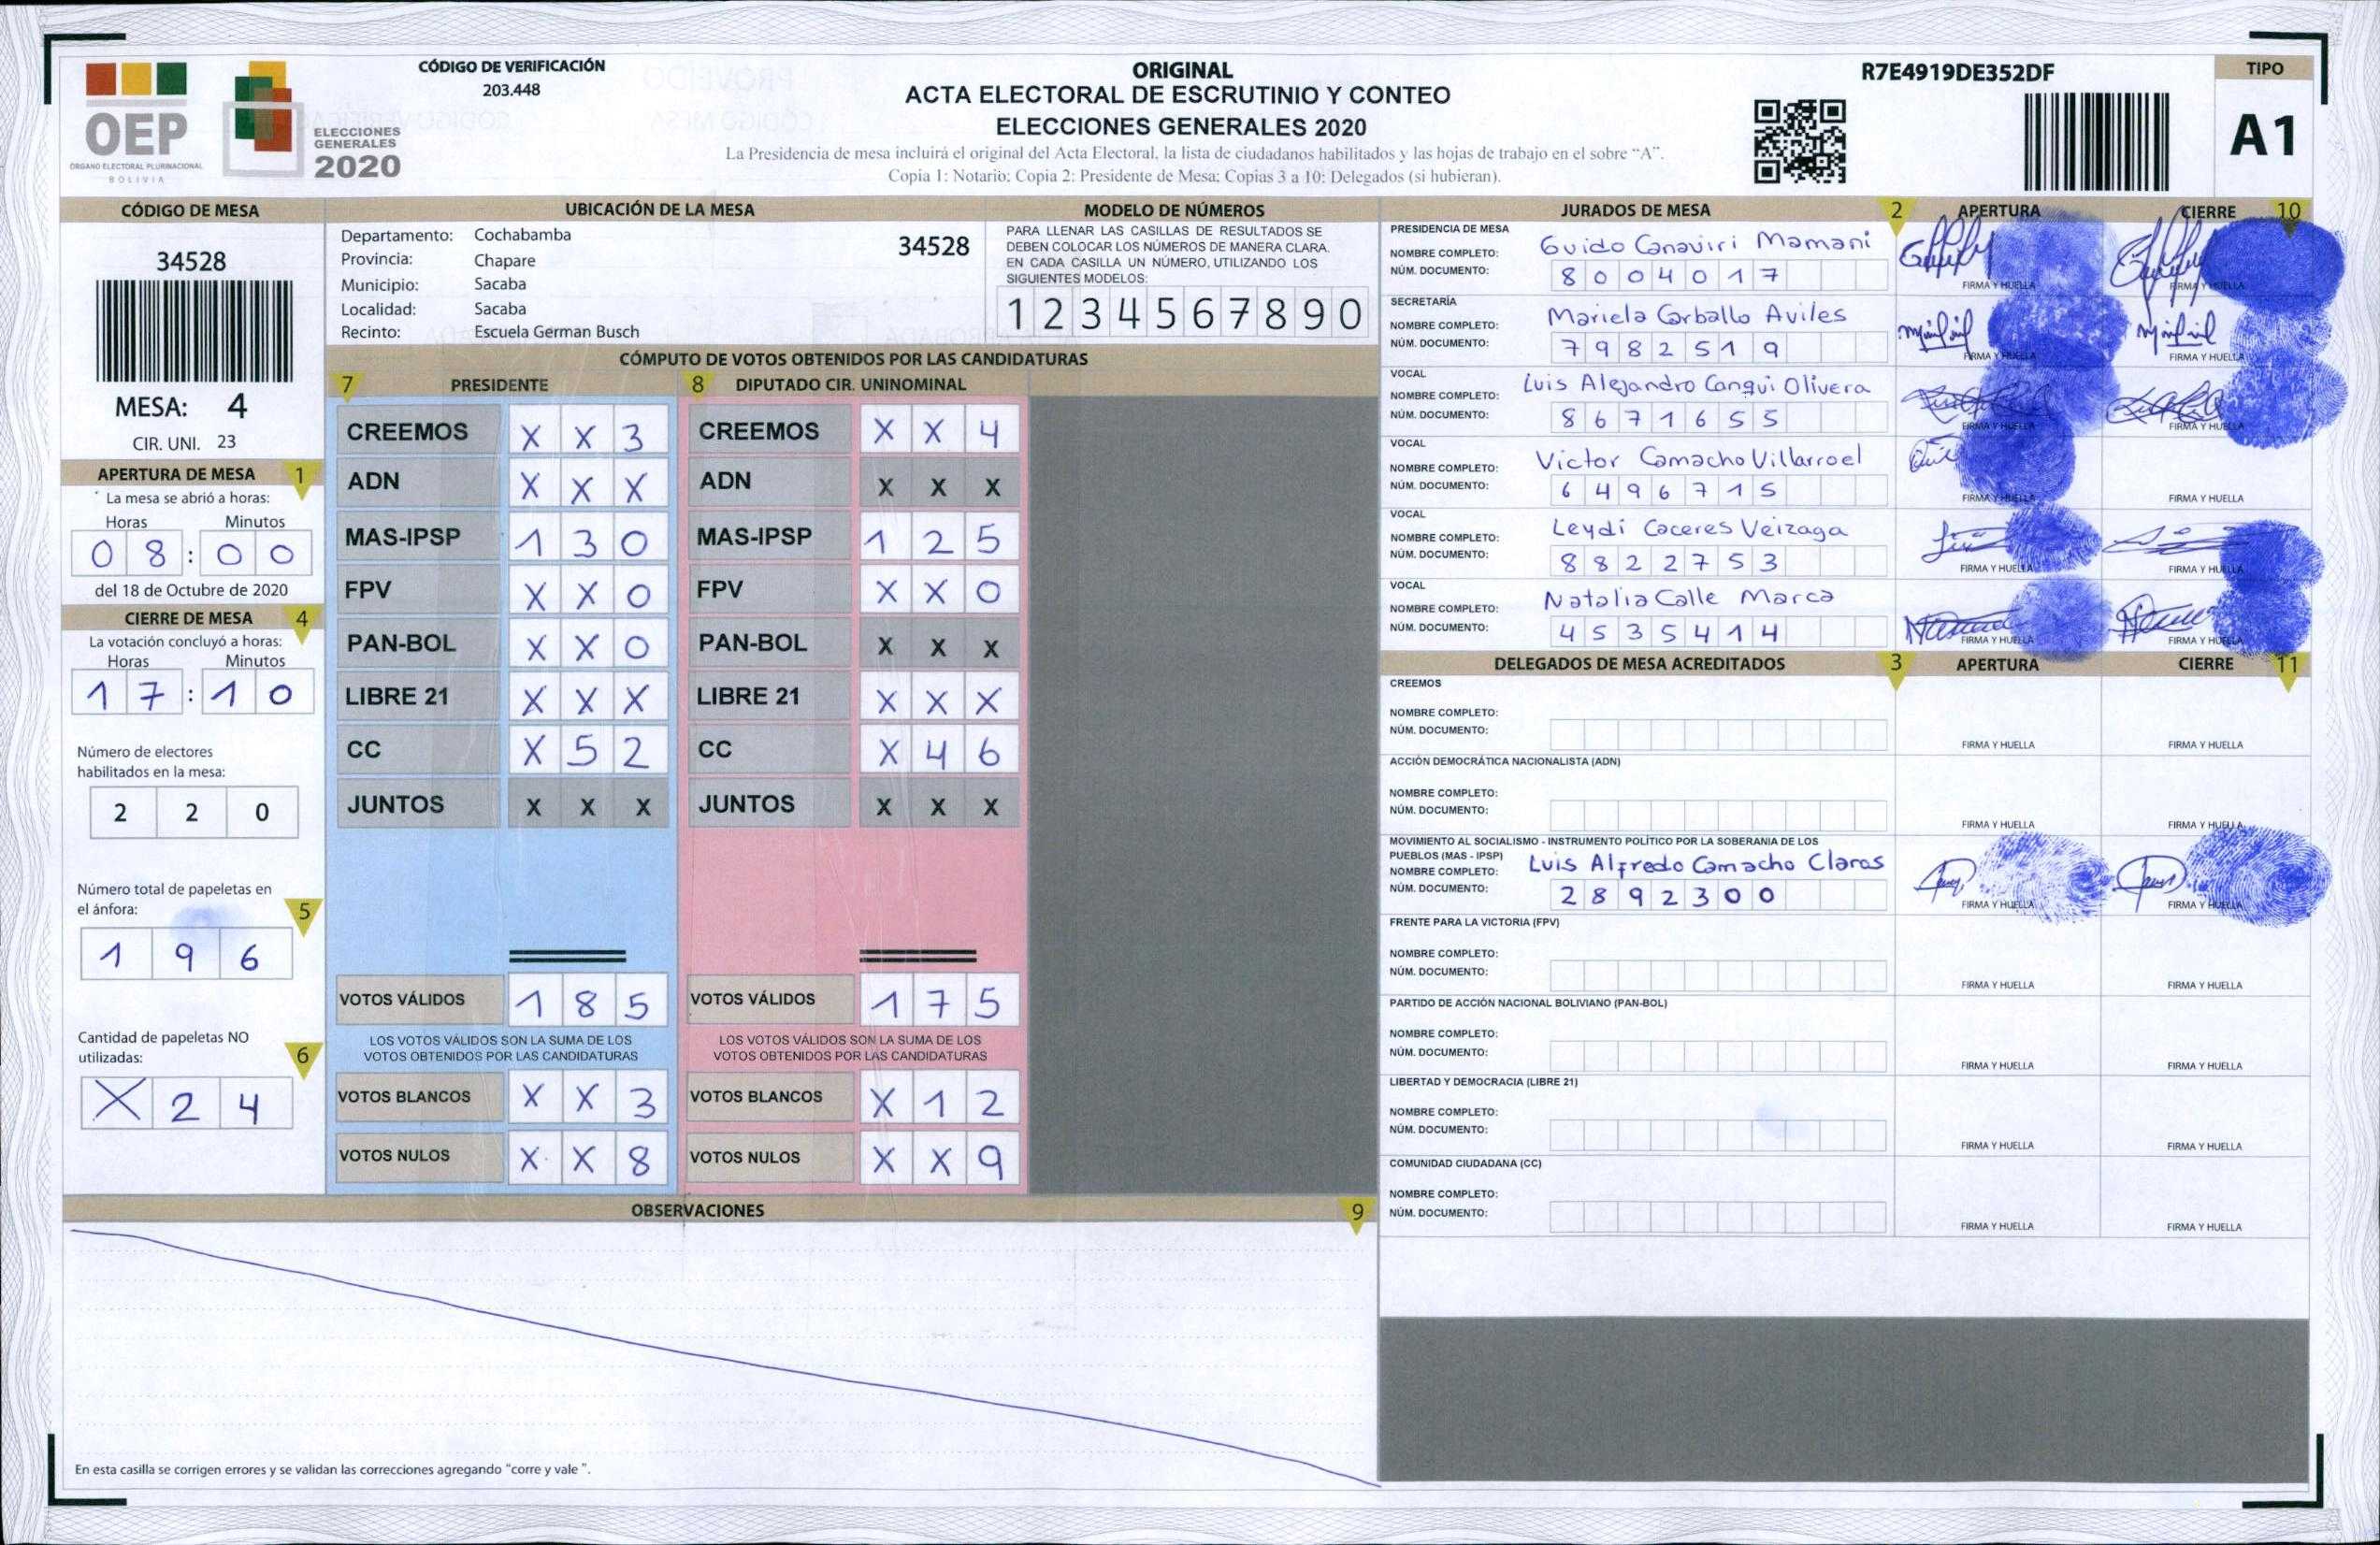 OEP
ÓRGANO ELECTORAL PLURINACIONAL
BOLIVIA
ELECCIONES
GENERALES
2020
CÓDIGO DE VERIFICACIÓN
203.448
ORIGINAL
ACTA ELECTORAL DE ESCRUTINIO Y CONTEO
ELECCIONES GENERALES 2020
La Presidencia de mesa incluirá el original del Acta Electoral, la lista de ciudadanos habilitados y las hojas de trabajo en el sobre “A”.
Copia 1: Notario; Copia 2: Presidente de Mesa; Copias 3 a 10: Delegados (si hubieran).
R7E4919DE352DF
TIPO
A1
CÓDIGO DE MESA
34528
MESA: 4
CIR. UNI. 23
APERTURA DE MESA 1
La mesa se abrió a horas:
Horas Minutos
0 8 : 0 0
del 18 de Octubre de 2020
CIERRE DE MESA 4
La votación concluyó a horas:
Horas Minutos
1 7 : 1 0
Número de electores
habilitados en la mesa:
2 2 0
Número total de papeletas en
el ánfora: 5
1 9 6
Cantidad de papeletas NO
utilizadas: 6
X 2 4
UBICACIÓN DE LA MESA
Departamento: Cochabamba
Provincia: Chapare
Municipio: Sacaba
Localidad: Sacaba
Recinto: Escuela German Busch
34528
MODELO DE NÚMEROS
PARA LLENAR LAS CASILLAS DE RESULTADOS SE
DEBEN COLOCAR LOS NÚMEROS DE MANERA CLARA.
EN CADA CASILLA UN NÚMERO, UTILIZANDO LOS
SIGUIENTES MODELOS:
1 2 3 4 5 6 7 8 9 0
CÓMPUTO DE VOTOS OBTENIDOS POR LAS CANDIDATURAS
7 PRESIDENTE 8 DIPUTADO CIR. UNINOMINAL
CREEMOS X X 3 CREEMOS X X 4
ADN X X X ADN X X X
MAS-IPSP 1 3 0 MAS-IPSP 1 2 5
FPV X X 0 FPV X X 0
PAN-BOL X X 0 PAN-BOL X X X
LIBRE 21 X X X LIBRE 21 X X X
CC X 5 2 CC X 4 6
JUNTOS X X X JUNTOS X X X
VOTOS VÁLIDOS 1 8 5 VOTOS VÁLIDOS 1 7 5
LOS VOTOS VÁLIDOS SON LA SUMA DE LOS LOS VOTOS VÁLIDOS SON LA SUMA DE LOS
VOTOS OBTENIDOS POR LAS CANDIDATURAS VOTOS OBTENIDOS POR LAS CANDIDATURAS
VOTOS BLANCOS X X 3 VOTOS BLANCOS X 1 2
VOTOS NULOS X X 8 VOTOS NULOS X X 9
OBSERVACIONES 9
En esta casilla se corrigen errores y se validan las correcciones agregando "corre y vale ".
JURADOS DE MESA 2 APERTURA CIERRE 10
PRESIDENCIA DE MESA
NOMBRE COMPLETO: Guido Canaviri Mamani
NÚM. DOCUMENTO: 8 0 0 4 0 1 7
FIRMA Y HUELLA FIRMA Y HUELLA
SECRETARÍA
NOMBRE COMPLETO: Mariela Carballo Aviles
NÚM. DOCUMENTO: 7 9 8 2 5 1 9
FIRMA Y HUELLA FIRMA Y HUELLA
VOCAL
NOMBRE COMPLETO: Luis Alejandro Canqui Olivera
NÚM. DOCUMENTO: 8 6 7 1 6 5 5
FIRMA Y HUELLA FIRMA Y HUELLA
VOCAL
NOMBRE COMPLETO: Victor Camacho Villarroel
NÚM. DOCUMENTO: 6 4 9 6 7 1 5
FIRMA Y HUELLA FIRMA Y HUELLA
VOCAL
NOMBRE COMPLETO: Leydi Caceres Veizaga
NÚM. DOCUMENTO: 8 8 2 2 7 5 3
FIRMA Y HUELLA FIRMA Y HUELLA
VOCAL
NOMBRE COMPLETO: Natalia Calle Marca
NÚM. DOCUMENTO: 4 5 3 5 4 1 4
FIRMA Y HUELLA FIRMA Y HUELLA
DELEGADOS DE MESA ACREDITADOS 3 APERTURA CIERRE 11
CREEMOS
NOMBRE COMPLETO:
NÚM. DOCUMENTO:
FIRMA Y HUELLA FIRMA Y HUELLA
ACCIÓN DEMOCRÁTICA NACIONALISTA (ADN)
NOMBRE COMPLETO:
NÚM. DOCUMENTO:
FIRMA Y HUELLA FIRMA Y HUELLA
MOVIMIENTO AL SOCIALISMO - INSTRUMENTO POLÍTICO POR LA SOBERANIA DE LOS
PUEBLOS (MAS - IPSP)
NOMBRE COMPLETO: Luis Alfredo Camacho Claros
NÚM. DOCUMENTO: 2 8 9 2 3 0 0
FIRMA Y HUELLA FIRMA Y HUELLA
FRENTE PARA LA VICTORIA (FPV)
NOMBRE COMPLETO:
NÚM. DOCUMENTO:
FIRMA Y HUELLA FIRMA Y HUELLA
PARTIDO DE ACCIÓN NACIONAL BOLIVIANO (PAN-BOL)
NOMBRE COMPLETO:
NÚM. DOCUMENTO:
FIRMA Y HUELLA FIRMA Y HUELLA
LIBERTAD Y DEMOCRACIA (LIBRE 21)
NOMBRE COMPLETO:
NÚM. DOCUMENTO:
FIRMA Y HUELLA FIRMA Y HUELLA
COMUNIDAD CIUDADANA (CC)
NOMBRE COMPLETO:
NÚM. DOCUMENTO:
FIRMA Y HUELLA FIRMA Y HUELLA